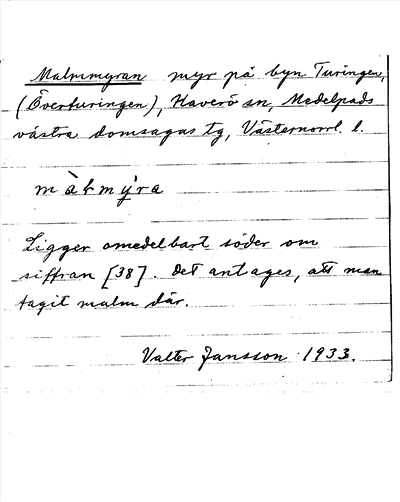 Malmmyran myr på byn Turingen,
(Överturingen), Haverö sn, Medelpads
västra domsagas tg, Västernorrl. l.
màɫmýra
Ligger omedelbart söder om
siffran [38]. Det antages, att man
tagit malm där.
Valter Jansson 1933.